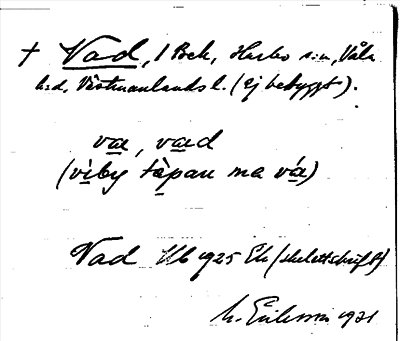 † Vad, 1 Bek, Harbo s:n, Våla
h:d, Västmanlands l. (ej bebyggt).
va, vad
(viby tåpan ma vá)
Vad Ub 1925 Ek (skelettskrift)
M. Eriksson 1931